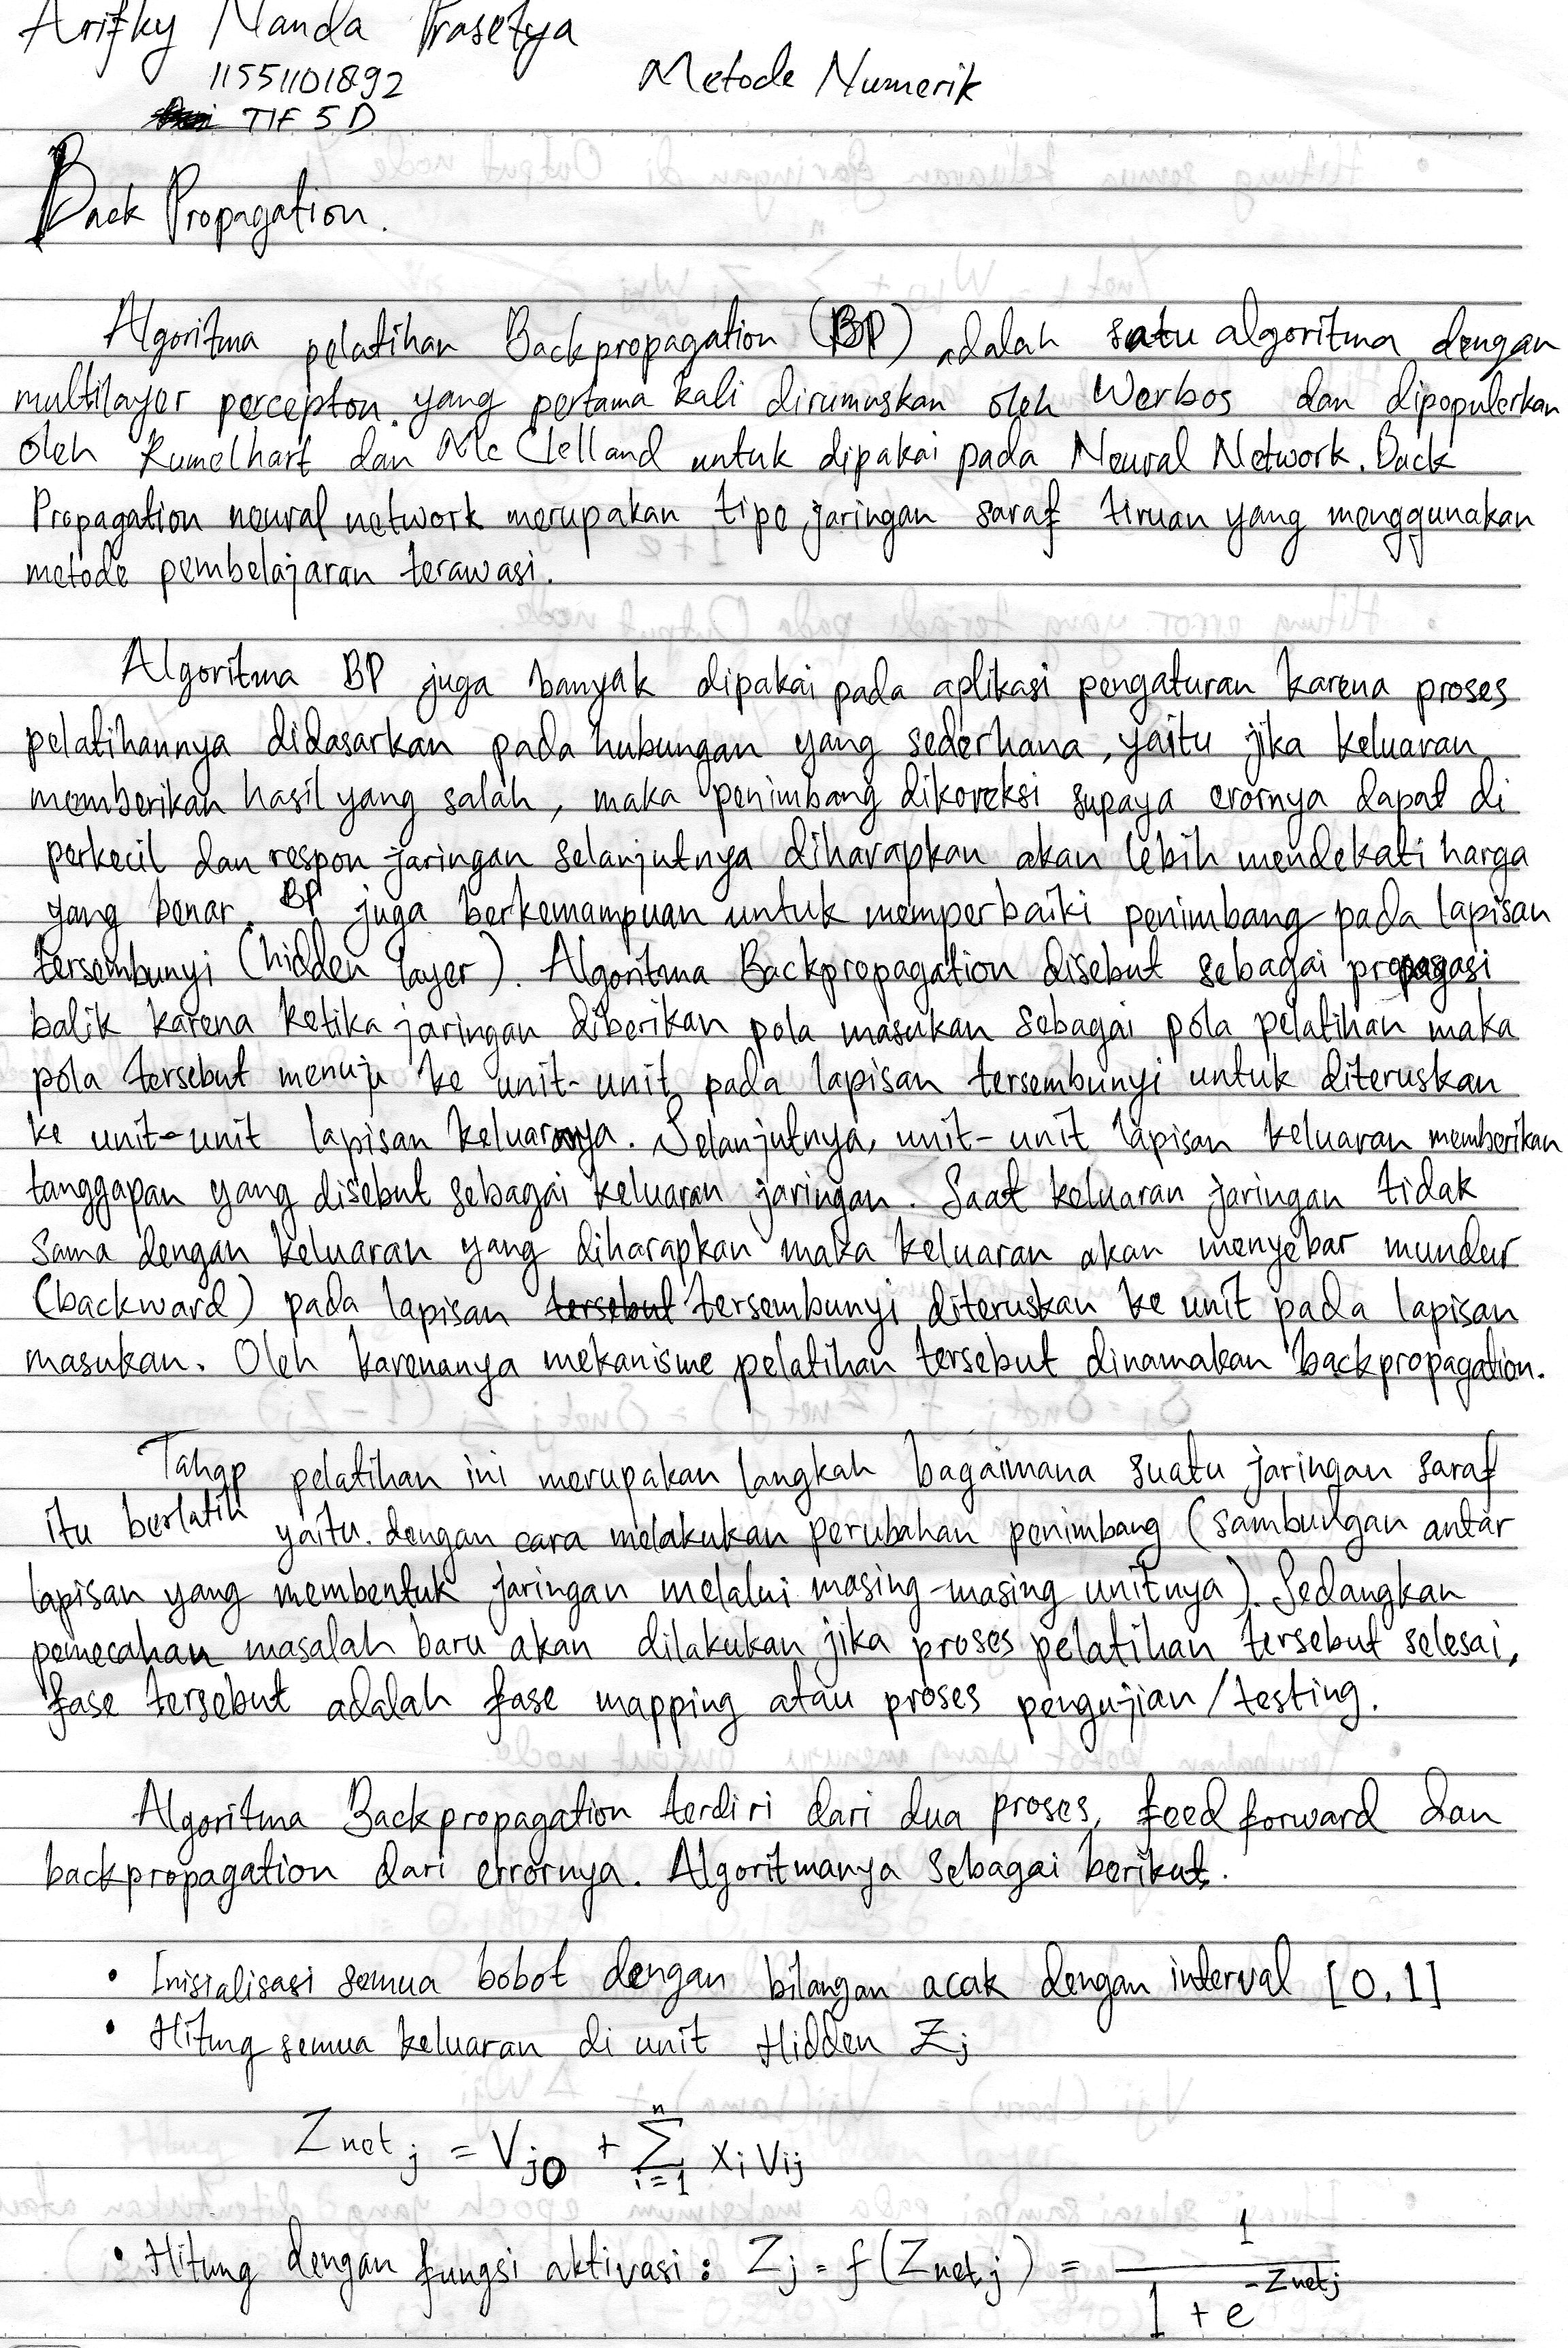 Arifky Nanda Prasetya
11551101892
Metode Numerik
TIF 5 D
Back Propagation.
Algoritma pelatihan Backpropagation (BP) adalah satu algoritma dengan
multilayer percepton yang pertama kali dirumuskan oleh Werbos dan dipopulerkan
oleh Rumelhart dan Mc Clelland untuk dipakai pada Neural Network. Back
Propagation neural network merupakan tipe jaringan saraf tiruan yang menggunakan
metode pembelajaran terawasi.
Algoritma BP juga banyak dipakai pada aplikasi pengaturan karena proses
pelatihannya didasarkan pada hubungan yang sederhana, yaitu jika keluaran
memberikan hasil yang salah, maka penimbang dikoreksi supaya erornya dapat di
perkecil dan respon jaringan selanjutnya diharapkan akan lebih mendekati harga
yang benar. BP juga berkemampuan untuk memperbaiki penimbang pada lapisan
tersembunyi (hidden layer). Algoritma Backpropagation disebut sebagai propagasi
balik karena ketika jaringan diberikan pola masukan sebagai pola pelatihan maka
pola tersebut menuju ke unit-unit pada lapisan tersembunyi untuk diteruskan
ke unit-unit lapisan keluarnya. Selanjutnya, unit-unit lapisan keluaran memberikan
tanggapan yang disebut sebagai keluaran jaringan. Saat keluaran jaringan tidak
sama dengan keluaran yang diharapkan maka keluaran akan menyebar mundur
(backward) pada lapisan tersebut tersembunyi diteruskan ke unit pada lapisan
masukan. Oleh karenanya mekanisme pelatihan tersebut dinamakan backpropagation.
Tahap pelatihan ini merupakan langkah bagaimana suatu jaringan saraf
itu berlatih yaitu dengan cara melakukan perubahan penimbang (sambungan antar
lapisan yang membentuk jaringan melalui masing-masing unitnya). Sedangkan
pemecahan masalah baru akan dilakukan jika proses pelatihan tersebut selesai,
fase tersebut adalah fase mapping atau proses pengujian/testing.
Algoritma Backpropagation terdiri dari dua proses, feed forward dan
backpropagation dari errornya. Algoritmanya sebagai berikut.
• Inisialisasi semua bobot dengan bilangan acak dengan interval [0,1]
• Hitung semua keluaran di unit Hidden Zj
Znet j = Vj0 + Σ(i=1, n) Xi Vij
• Hitung dengan fungsi aktivasi : Zj = f(Znetj) = 1 / (1 + e^-Znetj)